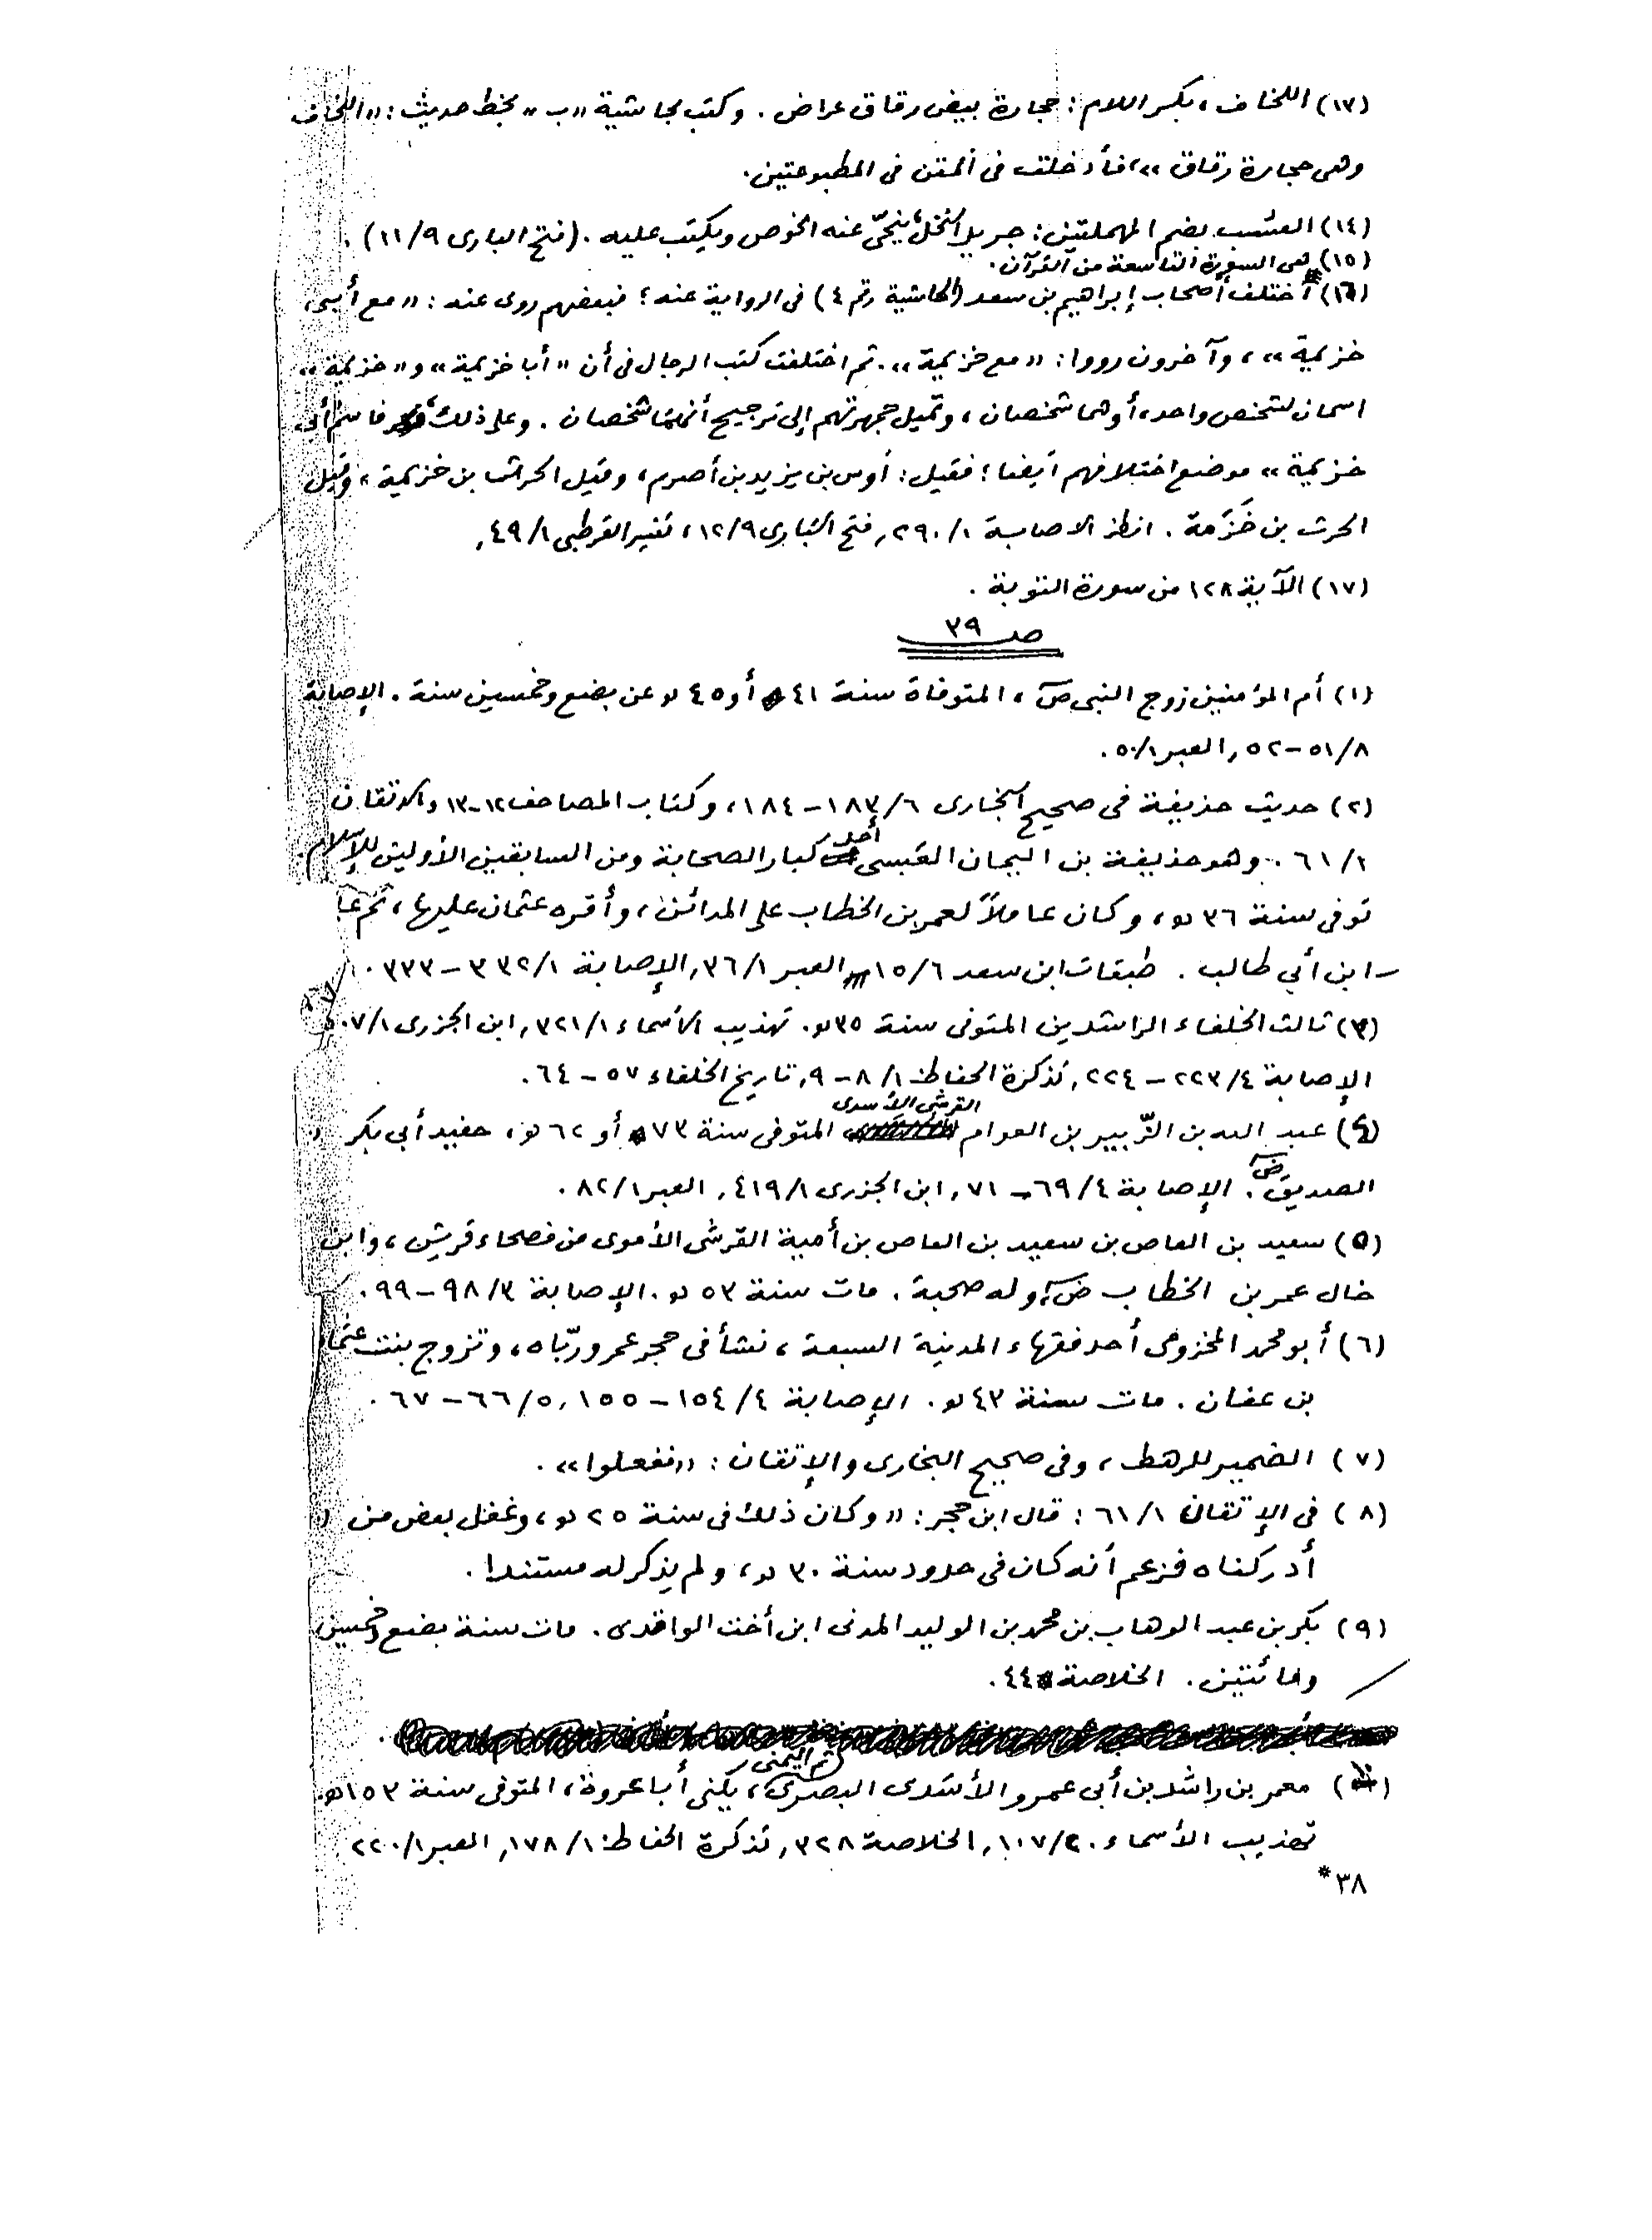 (١٣) اللخاف، بكسر اللام: حجارة بيض رقاق عراض. وكتب بحاشية «ب» بخط حديث: «اللخاف
وهى حجارة رقاق»، فأدخلت فى المتن فى المطبوعتين.
(١٤) العسب بضم المهملتين: جريد النخل، ينحّى عنه الخوص ويكتب عليه. (فتح البارى ١١/٩).
(١٥) هى السورة التاسعة من القرآن.
(١٦) اختلف أصحاب إبراهيم بن سعد (الحاشية رقم ٤) فى الرواية عنه؛ فبعضهم روى عنه: «مع أبى
خزيمة»، وآخرون رووا: «مع خزيمة». ثم اختلفت كتب الرجال فى أن «أبا خزيمة» و«خزيمة»
اسمان لشخص واحد، أو هما شخصان، وتميل جمهرتهم إلى ترجيح أنهما شخصان. وعلى ذلك فاسم «أبى
خزيمة» موضع اختلافهم أيضا؛ فقيل: أوس بن يزيد بن أصرم، وقيل الحرث بن خزيمة، وقيل
الحرث بن خَزَمة. انظر الاصابة ٢٩٠/١, فتح البارى ١٢/٩، تفسير القرطبى ٤٩/١,
(١٧) الآية ١٢٨ من سورة التوبة.
صـ ٣٩
(١) أم المؤمنين زوج النبى ص، المتوفاة سنة ٤١ أو ٤٥ هـ عن بضع وخمسين سنة. الإصابة
٥١/٨-٥٢, العبر ٥٠/١.
(٢) حديث حذيفة فى صحيح البخارى ١٨٣/٦-١٨٤، وكتاب المصاحف ١٢-١٣ والاتقان
٦١/١. وهو حذيفة بن اليمان العبسى أحد كبار الصحابة ومن السابقين الأولين للإسلام.
توفى سنة ٣٦ هـ، وكان عاملاً لعمر بن الخطاب على المدائن، وأقره عثمان عليها، ثم
ابن أبي طالب. طبقات ابن سعد ١٥/٦ العبر ٣٦/١, الإصابة ٣٣٢/١-٣٣٣.
(٣) ثالث الخلفاء الراشدين المتوفى سنة ٣٥ هـ. تهذيب الأسماء ٣٢١/١, ابن الجزرى ٥٠٧/١
الإصابة ٢٢٣/٤-٢٢٤, تذكرة الحفاظ ٨/١-٩, تاريخ الخلفاء ٥٧-٦٤.
(٤) عبد الله بن الزّبير بن العوام القرشى الأسدى المتوفى سنة ٧٣ أو ٦٢ هـ، حفيد أبي بكر
الصديق رض. الإصابة ٦٩/٤-٧١, ابن الجزرى ٤١٩/١, العبر ٨٢/١.
(٥) سعيد بن العاص بن سعيد بن العاص بن أمية القرشى الأموى من فصحاء قريش، وابن
خال عمر بن الخطاب رض، وله صحبة. مات سنة ٥٣ هـ. الإصابة ٩٨/٣-٩٩.
(٦) أبو محمد المخزومى أحد فقهاء المدينة السبعة، نشأ فى حجر عمر وربّاه، وتزوج بنت
بن عفان. مات سنة ٤٣ هـ. الإصابة ١٥٤/٤-١٥٥, ٦٦/٥-٦٧.
(٧) الضمير للرهط، وفى صحيح البخارى والإتقان: «ففعلوا».
(٨) فى الإتقان ٦١/١: قال ابن حجر: «وكان ذلك فى سنة ٢٥ هـ، وغفل بعض من
أدركناه فزعم أنه كان فى حدود سنة ٣٠ هـ، ولم يذكر له مستندا.
(٩) بكر بن عبد الوهاب بن محمد بن الوليد المدنى ابن أخت الواقدى. مات سنة بضع وخمسين
ومائتين. الخلاصة ٤٤.
معمر بن راشد بن أبى عمرو الأسدى البصرى، ثم اليمنى يكنى أبا عروة، المتوفى سنة ١٥٣ هـ.
تهذيب الأسماء ١٠٧/٢, الخلاصة ٣٢٨, تذكرة الحفاظ ١٧٨/١, العبر ٢٢٠/١
٣٨*